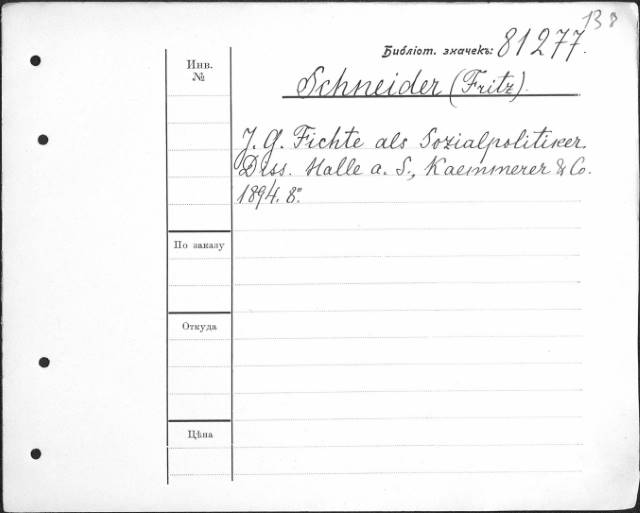 138
Библіот. значекъ: 81277.
Инв.
№
Schneider (Fritz).
J. G. Fichte als Sozialpolitiker.
Diss. Halle a. S., Kaemmerer & Co.
1894. 8°.
По заказу
Откуда
Цѣна